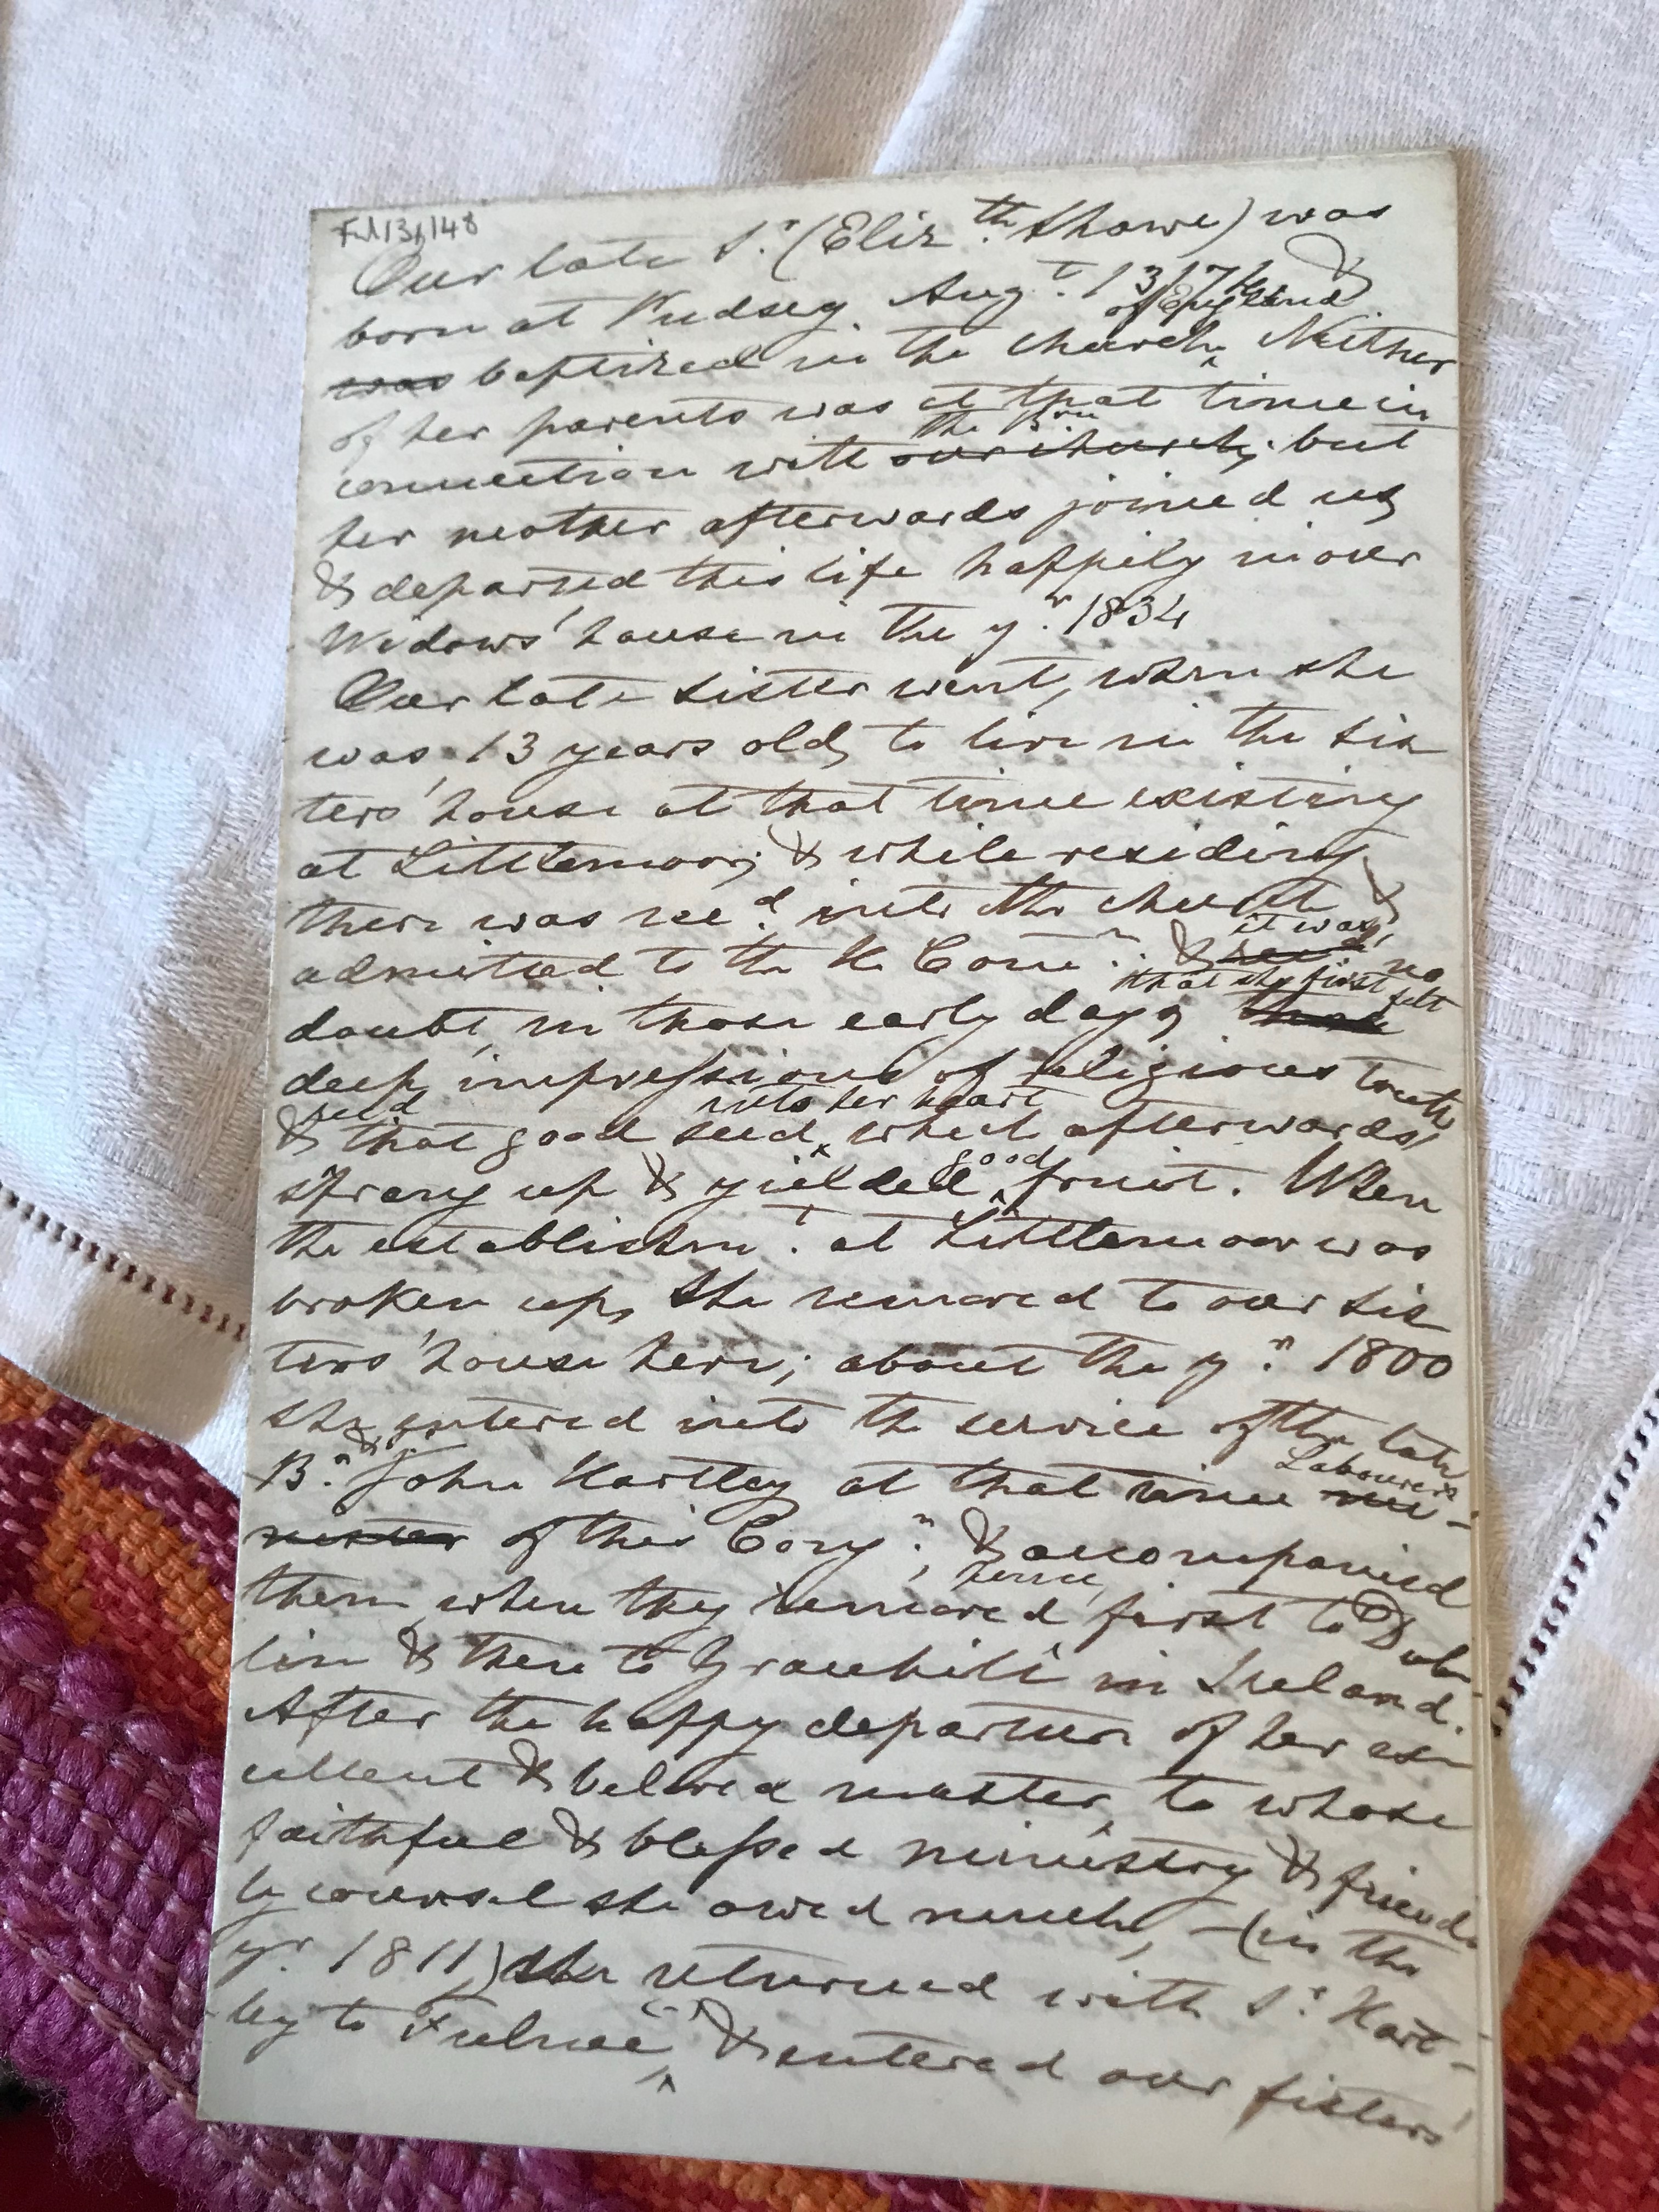 Ful 13/148
Our late Sr. (Elizth. Shawe) was
born at Pudsey, Augt. 13, &
of England
was baptized in the church. Neither
of her parents was at that time in
the Bren
connection with our church; but
her mother afterwards joined us,
& departed this life happily in our
Widows' house in the yr. 1834
Our late sister went, when she
was 13 years old, to live in the sis
ters' house at that time existing
at Littlemoor; & while residing
there was recd. into the church &
it was,
admitted to the H. Comn.: & no
that she first felt
doubt, in those early days,
deep impressions of religious truth
recd into her heart
& that good seed, which afterwards
good
sprang up & yielded fruit. When
the establishmt. at Littlemoor was
broken up, she removed to our sis
ters' house here; about the yr. 1800
she entered into the service of the late
& Sr Labourers
Br. John Hartley at that time mi-
nister of this Congn., & accompanied
hence,
them, when they removed first to Dub-
lin & then to Gracehill in Ireland.
After the happy departure of her ex
cellent & beloved master, to whose
faithful & blessed ministry & friend-
ly counsel she owed much, (in the
yr. 1811,) she returned with Sr. Hart-
ley to Fulnec, & entered our sisters'